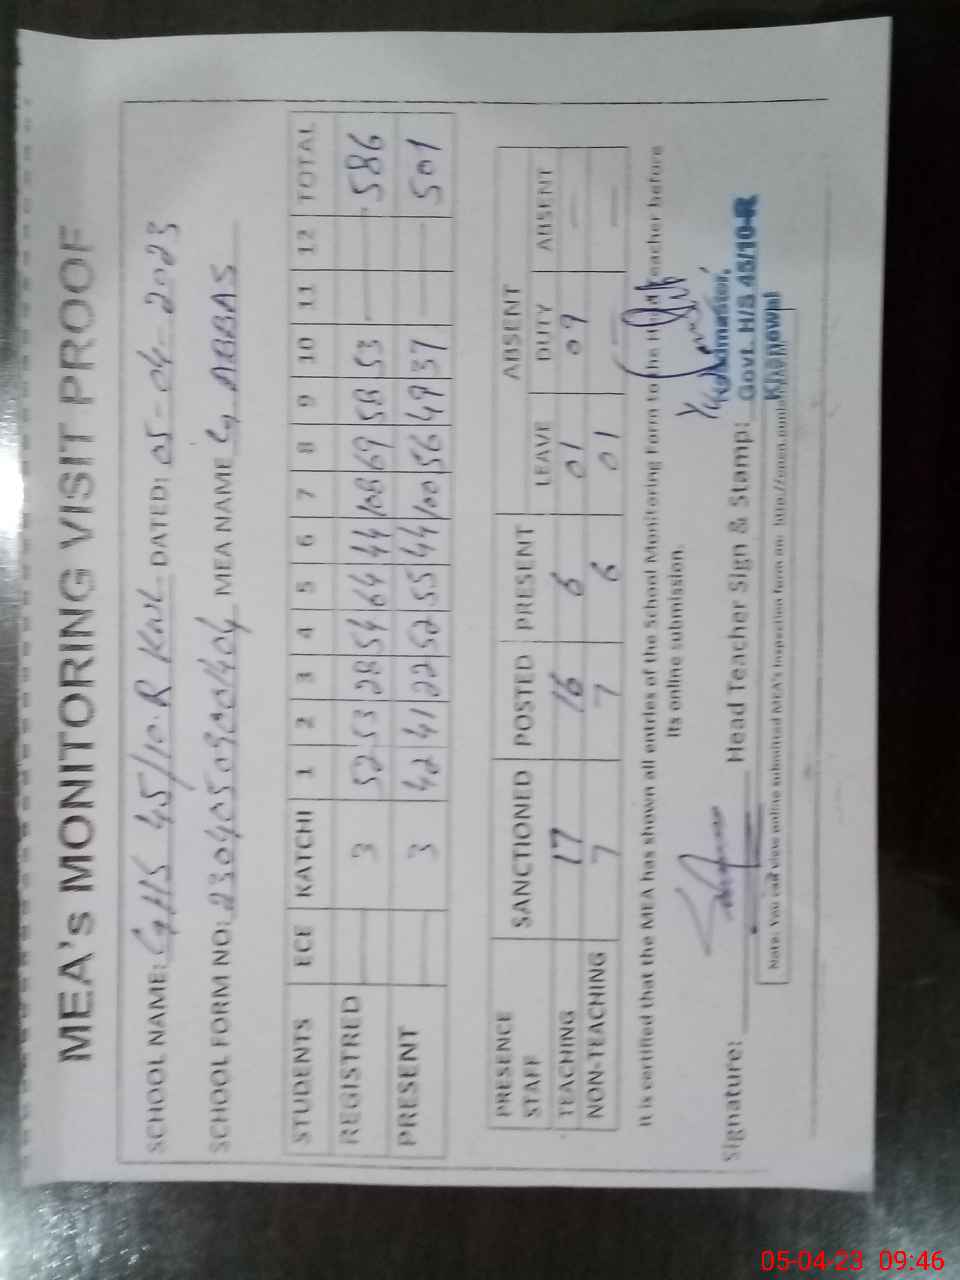 MEA's MONITORING VISIT PROOF
SCHOOL NAME: GHS 45/10.R Kwl. DATED: 05-04-2023
SCHOOL FORM NO: 2304050900404 MEA NAME G ABBAS
STUDENTS ECE KATCHI 1 2 3 4 5 6 7 8 9 10 11 12 TOTAL
REGISTRED — 3 52 53 28 54 64 44 108 69 58 53 — — 586
PRESENT — 3 42 41 22 52 55 44 100 56 49 37 — — 501
PRESENCE STAFF SANCTIONED POSTED PRESENT ABSENT
LEAVE DUTY ABSENT
TEACHING 17 16 6 01 09 —
NON-TEACHING 7 7 6 01 —
It is certified that the MEA has shown all entries of the School Monitoring Form to the Head Teacher before
its online submission.
Signature: Head Teacher Sign & Stamp:
Headmaster,
Govt. H/S 45/10-R
Khanewal
Note: You can view online submitted MEA's inspection form on: http://open.
05-04-23 09:46